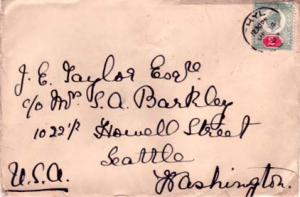 J. E. Taylor Esqre.
c/o Mr. S. A. Barkley
1022½ Howell Street
Seattle
U.S.A. Washington.